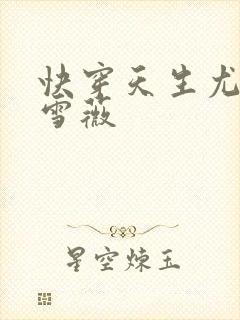 快穿天生尤
雪薇
星空炼玉